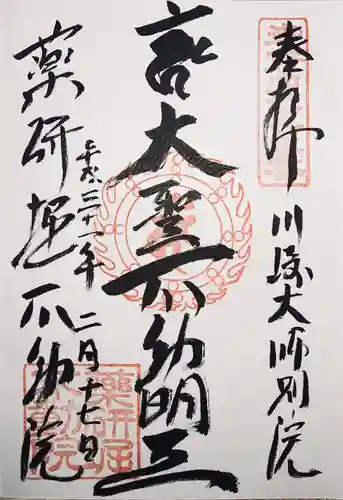 奉拝
川崎大師別院
大聖不動明王
平成三十一年二月十七日
薬研堀不動院
薬研堀
不動院